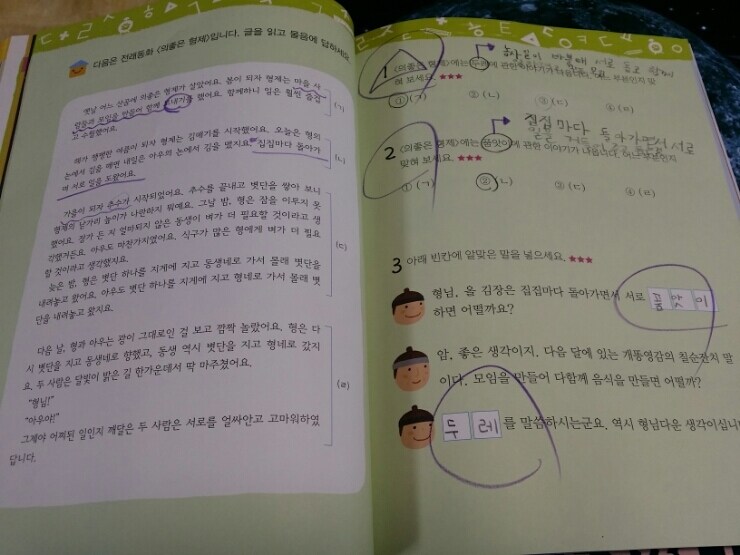 다음은 전래동화 《의좋은 형제》입니다. 글을 읽고 물음에 답하세요.
옛날 어느 산골에 의좋은 형제가 살았어요. 봄이 되자 형제는 마을 사
람들과 모임을 만들어 함께 모내기를 했어요. 함께하니 일은 훨씬 순
고 수월했어요.
(ㄱ)
해가 쨍쨍한 여름이 되자 형제는 김매기를 시작했어요. 오늘은 형의
논에서 김을 매면 내일은 아우의 논에서 김을 맸지요. 집집마다 돌아가
며 서로 일을 도왔어요.
(ㄴ)
가을이 되자 추수가 시작되었어요. 추수를 끝내고 볏단을 쌓아 보니
형제의 낟가리 높이가 나란하지 뭐예요. 그날 밤, 형은 잠을 이루지 못
했어요. 장가 든 지 얼마되지 않은 동생이 벼가 더 필요할 것이라고 생
각했거든요. 아우도 마찬가지였어요. 식구가 많은 형에게 벼가 더 필요
할 것이라고 생각했지요.
늦은 밤, 형은 볏단 하나를 지게에 지고 동생네로 가서 몰래 볏단을
내려놓고 왔어요. 아우도 볏단 하나를 지게에 지고 형네로 가서 몰래 볏
단을 내려놓고 왔지요.
(ㄷ)
다음 날, 형과 아우는 광이 그대로인 걸 보고 깜짝 놀랐어요. 형은 다
시 볏단을 지고 동생네로 향했고, 동생 역시 볏단을 지고 형네로 갔지
요. 두 사람은 달빛이 밝은 길 한가운데서 딱 마주쳤어요.
"형님!"
"아우야!"
그제야 어찌된 일인지 깨달은 두 사람은 서로를 얼싸안고 고마워하였
답니다.
(ㄹ)
1 《의좋은 형제》에는 두레에 관한 이야기가 나옵니다. 부분인지 맞
혀 보세요. ★★★
① (ㄱ) ② (ㄴ) ③ (ㄷ) ④ (ㄹ)
집집마다 돌아가면서 서로
2 《의좋은 형제》에는 품앗이에 관한 이야기가 나옵니다. 어느 부분인지
맞혀 보세요. ★★★
① (ㄱ) ② (ㄴ) ③ (ㄷ) ④ (ㄹ)
3 아래 빈칸에 알맞은 말을 넣으세요. ★★★
형님, 올 김장은 집집마다 돌아가면서 서로 품앗이
하면 어떨까요?
암, 좋은 생각이지. 다음 달에 있는 개똥영감의 칠순잔치 말
이다. 모임을 만들어 다함께 음식을 만들면 어떨까?
두레를 말씀하시는군요. 역시 형님다운 생각이십니